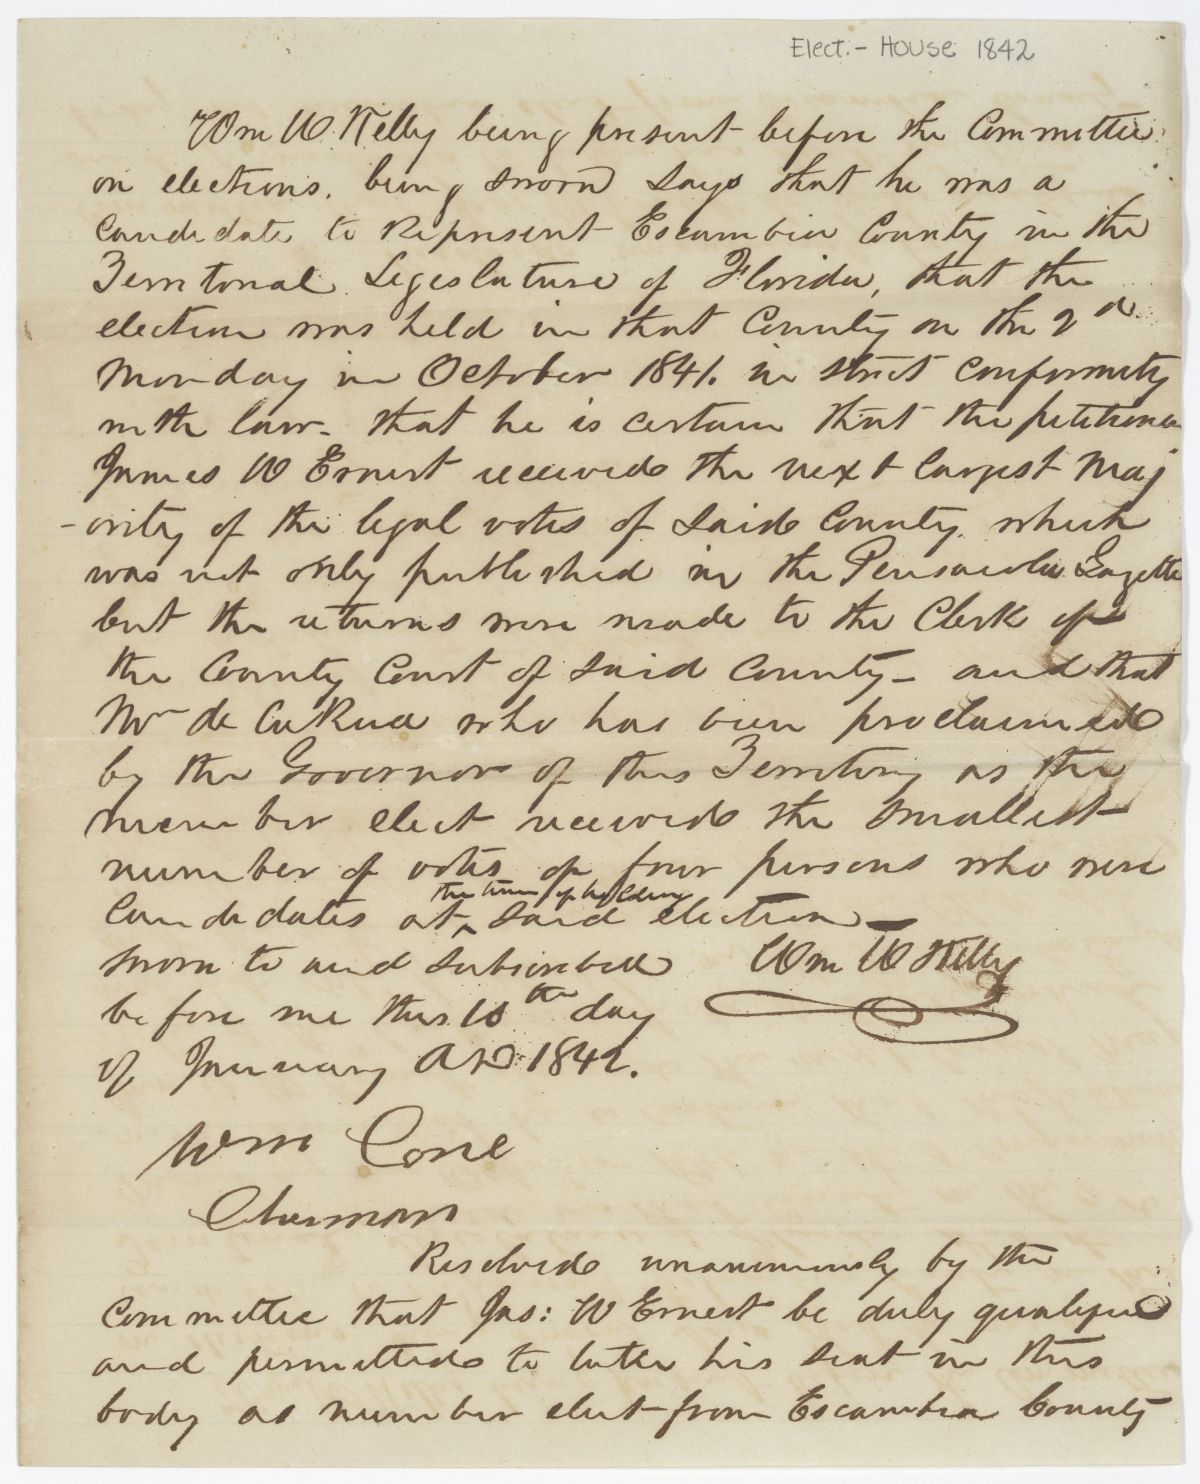 Elect. - House 1842
Wm W Kelly being present before the Committee
on elections. being sworn says that he was a
candidate to Represent Escambia County in the
Territorial Legislature of Florida, that the
election was held in that County on the 2d
Monday in October 1841. in strict conformity
with law - that he is certain that the petitioner
James W Ernest received the next largest maj
-ority of the legal votes of said County. which
was not only published in the Pensacola Gazette
but the returns were made to the Clerk of
the County Court of said County - and that
Mr de LaRua who has been proclaimed
by the Governor of this Territory as the
member elect received the smallest
number of votes of four persons who were
the time of holding
Candidates at ^ said election -
Sworn to and subscribed Wm W Kelly
before me this 10th day
of January AD 1842.
Wm Cone
Chairman
Resolved unanimously by the
Committee that Jas: W Ernest be duly qualified
and permitted to take his seat in this
body as member elect from Escambia County